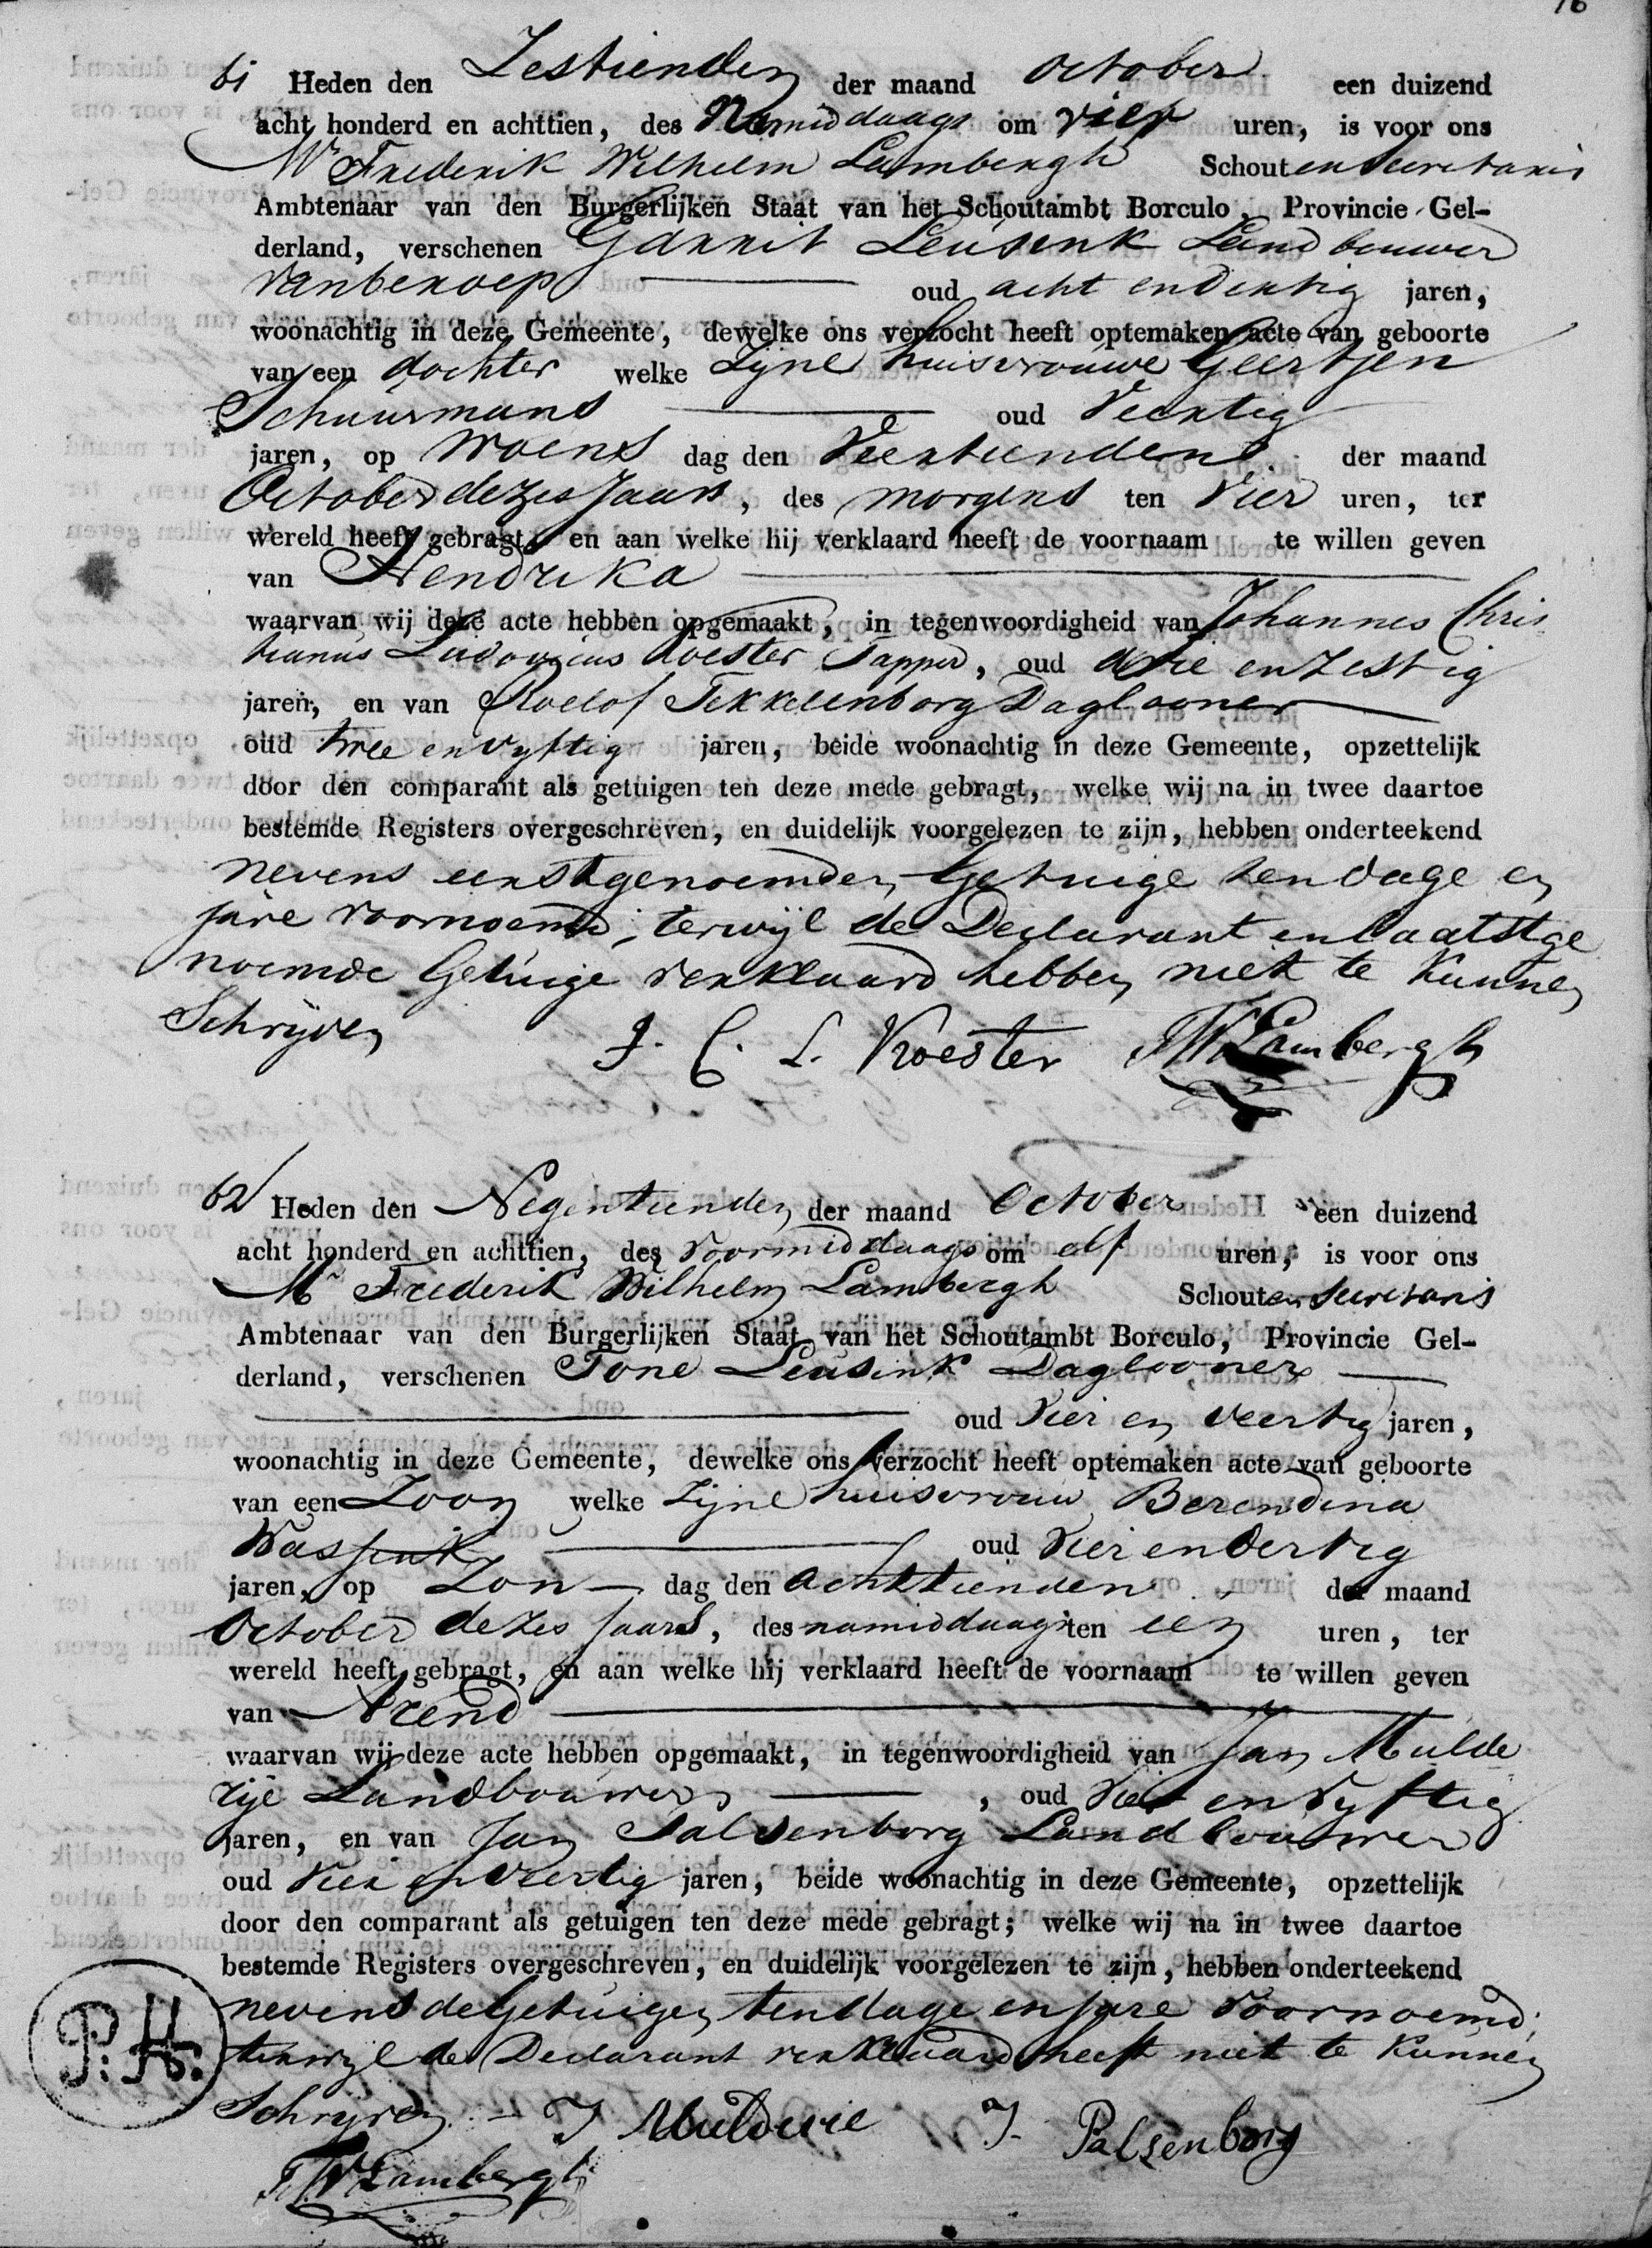 16
61 Heden den Zestienden der maand October een duizend
acht honderd en achttien, des Namiddaags om vier uren, is voor ons
Mr Frederik Wilhelm Lambergh Schout en Secretaris
Ambtenaar van den Burgerlijken Staat van het Schoutambt Borculo, Provincie Gel-
derland, verschenen Garrit Leusink Landbouwer
van beroep oud acht en dertig jaren,
woonachtig in deze Gemeente, dewelke ons verzocht heeft optemaken acte van geboorte
van een dochter welke Zijne huisvrouwe Geertjen
Schuurmans oud Veertig
jaren, op Woens dag den Veertienden der maand
October dezes Jaars, des morgens ten Vier uren, ter
wereld heeft gebragt, en aan welke hij verklaard heeft de voornaam te willen geven
van Hendrika
waarvan wij deze acte hebben opgemaakt, in tegenwoordigheid van Johannes Chris
tianus Ludovicus Koester Tapper, oud drie en Zestig
jaren, en van Roelof Tekkelenborg Daglooner
oud twee en vyftig jaren, beide woonachtig in deze Gemeente, opzettelijk
door den comparant als getuigen ten deze mede gebragt, welke wij na in twee daartoe
bestemde Registers overgeschreven, en duidelijk voorgelezen te zijn, hebben onderteekend
nevens eerstgenoemden Getuige ten dage en
jare voornoemd, terwijl de Declarant en laatstge
noemde Getuige verklaard hebben niet te Kunnen
Schrijven
J. C. L. Koester FWLambergh
62 Heden den Negentienden der maand October een duizend
acht honderd en achttien, des Voormiddaags om elf uren, is voor ons
Mr Frederik Wilhelm Lambergh Schout en Secretaris
Ambtenaar van den Burgerlijken Staat van het Schoutambt Borculo, Provincie Gel-
derland, verschenen Tone Leusink Daglooner
oud Vier en Veertig jaren,
woonachtig in deze Gemeente, dewelke ons verzocht heeft optemaken acte van geboorte
van een Zoon welke Zijne huisvrouw Berendina
Wassink oud Vier en dertig
jaren, op Zon dag den Achttienden der maand
October dezes Jaars, des namiddaags ten een uren, ter
wereld heeft gebragt, en aan welke hij verklaard heeft de voornaam te willen geven
van Arend
waarvan wij deze acte hebben opgemaakt, in tegenwoordigheid van Jan Mulde
rije Landbouwer, oud Vier en Vyftig
jaren, en van Jan Palsenborg Landbouwer
oud Vier en Veertig jaren, beide woonachtig in deze Gemeente, opzettelijk
door den comparant als getuigen ten deze mede gebragt; welke wij na in twee daartoe
bestemde Registers overgeschreven, en duidelijk voorgelezen te zijn, hebben onderteekend
nevens de Getuigen ten dage en jare Voornoemd;
terwijl de Declarant verklaard heeft niet te Kunnen
Schryven – J Mulderie J. Palsenborg
FWLambergh
P.H.